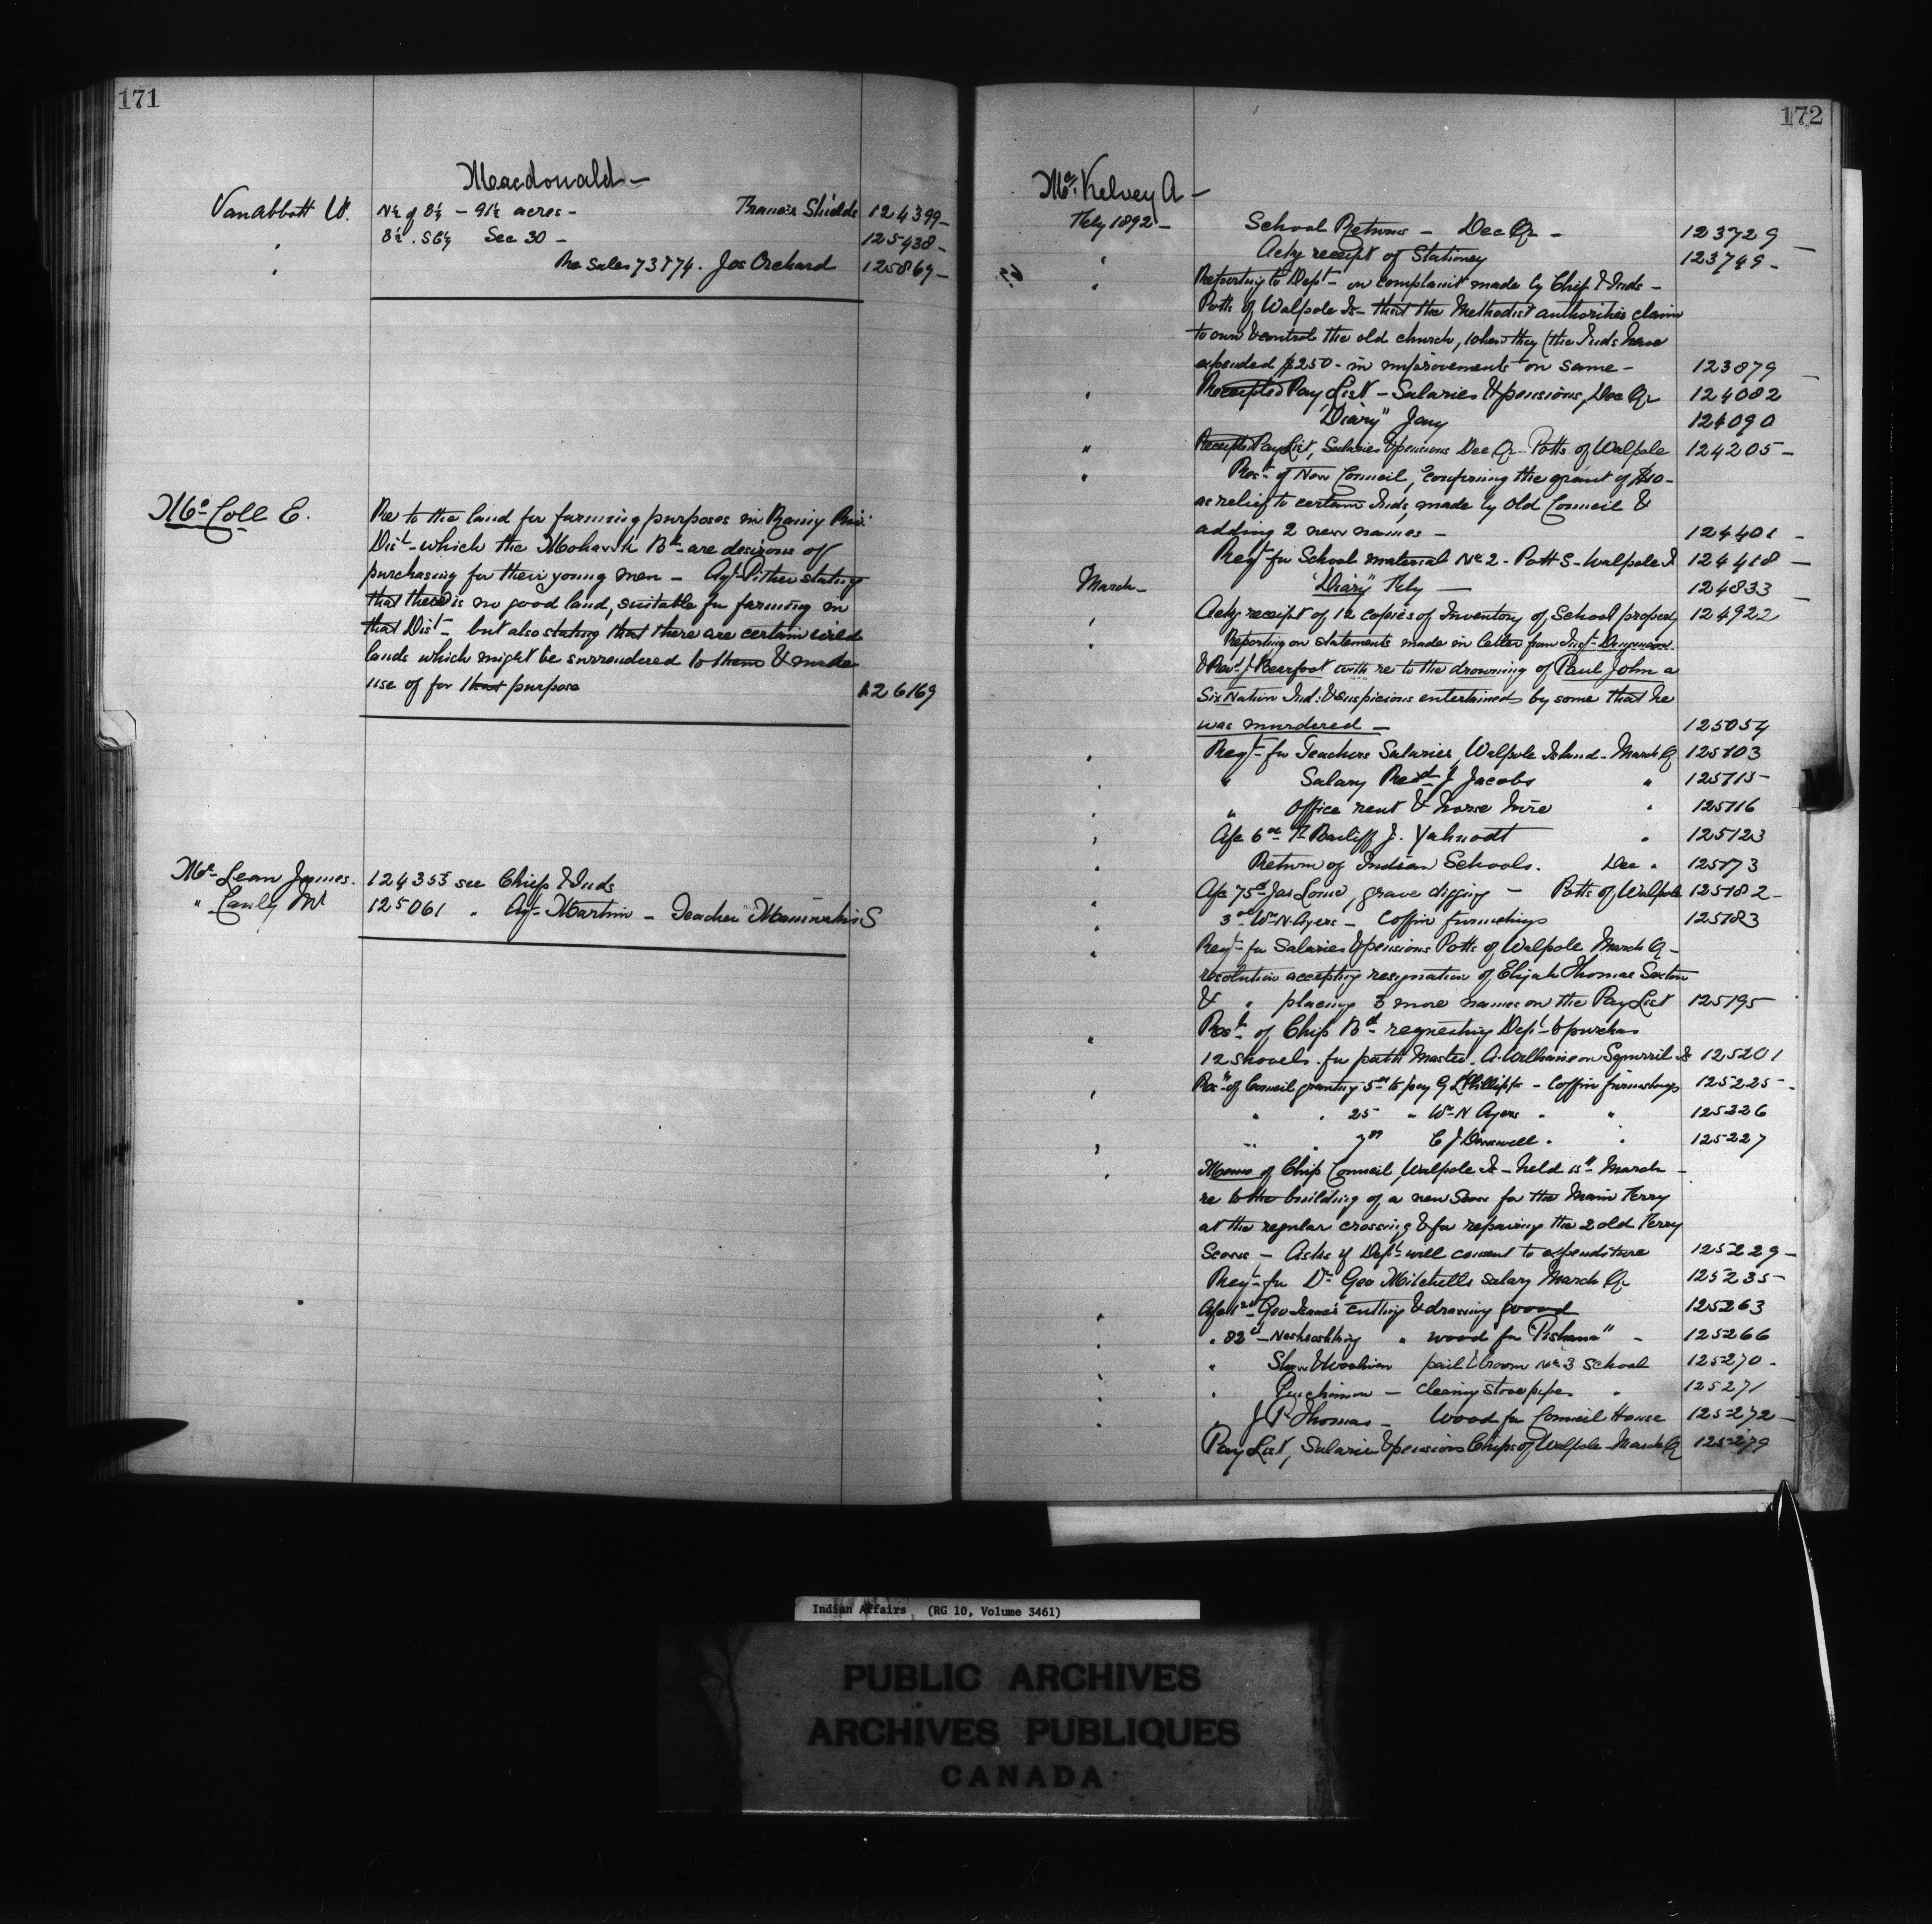 171
Macdonald -
Vanabbott W. N½ of 8¼ - 91½ acres - Francis Shields 124399 -
" 8½. SE¼ Sec 30 - 125438 -
" Re Sales 73874. Jos Orchard 125869 -
McColl E. Re to the land for farming purposes in Rainy Riv:
Dist - which the Mohawk Bd - are desirous of
purchasing for their young men - Agt Pither stating
that there is no good land, suitable for farming in
that Dist - but also stating that there are certain wild
lands which might be surrendered to them & made
use of for that purpose 126169
McLean James. 124353 see Chief & Inds
" 125061 " Agt Martin - Teacher S
172
McKelvey A -
Feby 1892 - School Returns - Dec Qr - 123729
" Ackg receipt of Stationey 123749 -
" Reporting to Dept - on complaint made by Chief & Inds -
Potts of Walpole Is - that the Methodist authorities claim
to own & control the old church, when they (the Inds have
expended $250 - in improvements on same - 123879
" Receipted Pay List - Salaries & pensions, Dec Qr 124082
"Diary" Jany 124090
" Receipted Pay List, Salaries & pensions Dec Qr - Potts of Walpole 124205 -
" Rest. of New Council, confirming the grant of $10 -
as relief to certain Inds, made by Old Council &
adding 2 new names - 124401 -
Reqt for School material No 2 - Potts - Walpole I 124418 -
March - "Diary" Feby - 124833
" Ackg receipt of 12 copies of Inventory of School property 124922
" Reporting on statements made in letter from
& Revd J. Bearfoot with re to the drowning of Paul John a
Six Nation Ind: & suspicions entertained by some that he
was murdered - 125054
" Reqt - for Teachers Salaries, Walpole Island - March Q 125103
" " Salary Revd J Jacobs " 125115
" " Office rent & horse hire " 125116
" A/c 6 Bailiff J. Yahnodt " 125123
" Return of Indian Schools. Dec " 125173
" A/c 75 Jas Lome, grave digging - Potts of Walpole 125182 -
" 3 Wm N. Ayers - Coffin furnishings 125183
" Reqt - for Salaries & pensions Potts of Walpole March Q -
resolution accepting resignation of Elijah Thomas Sexton
& " placing 3 more names on the Pay List 125195
" Rest. of Chip Bd - requesting Dept - to purchas
12 shovels for path Master. A. Williams on Squirril Is 125201
" Rest - of Council granting 5 to pay G L Phillips - Coffin furnishings 125225 -
" " 25 " Wm N Ayers " " 125226
" " " 7 C J " " 125227
" Memo of Chip Council, Walpole Is - held 15th March -
re to the building of a new Scow for the Main Ferry
at the regular crossing & for repairing the 2 old Ferry
Scows - Asks if Dept - will consent to expenditure 125229 -
Reqt - for Dr Geo Mitchells salary March Qr 125235 -
" A/c Geo Isaac's cutting & drawing wood 125263
" " 82 - " wood for 125266
" " pail & broom No 3 School 125270 -
" " - cleaning stove pipes " 125271
" " J. P. Thomas - Wood for Council House 125272 -
Pay List, Salaries & pensions Chips of Walpole - March Q 125279
Indian Affairs (RG 10, Volume 3461)
PUBLIC ARCHIVES
ARCHIVES PUBLIQUES
CANADA